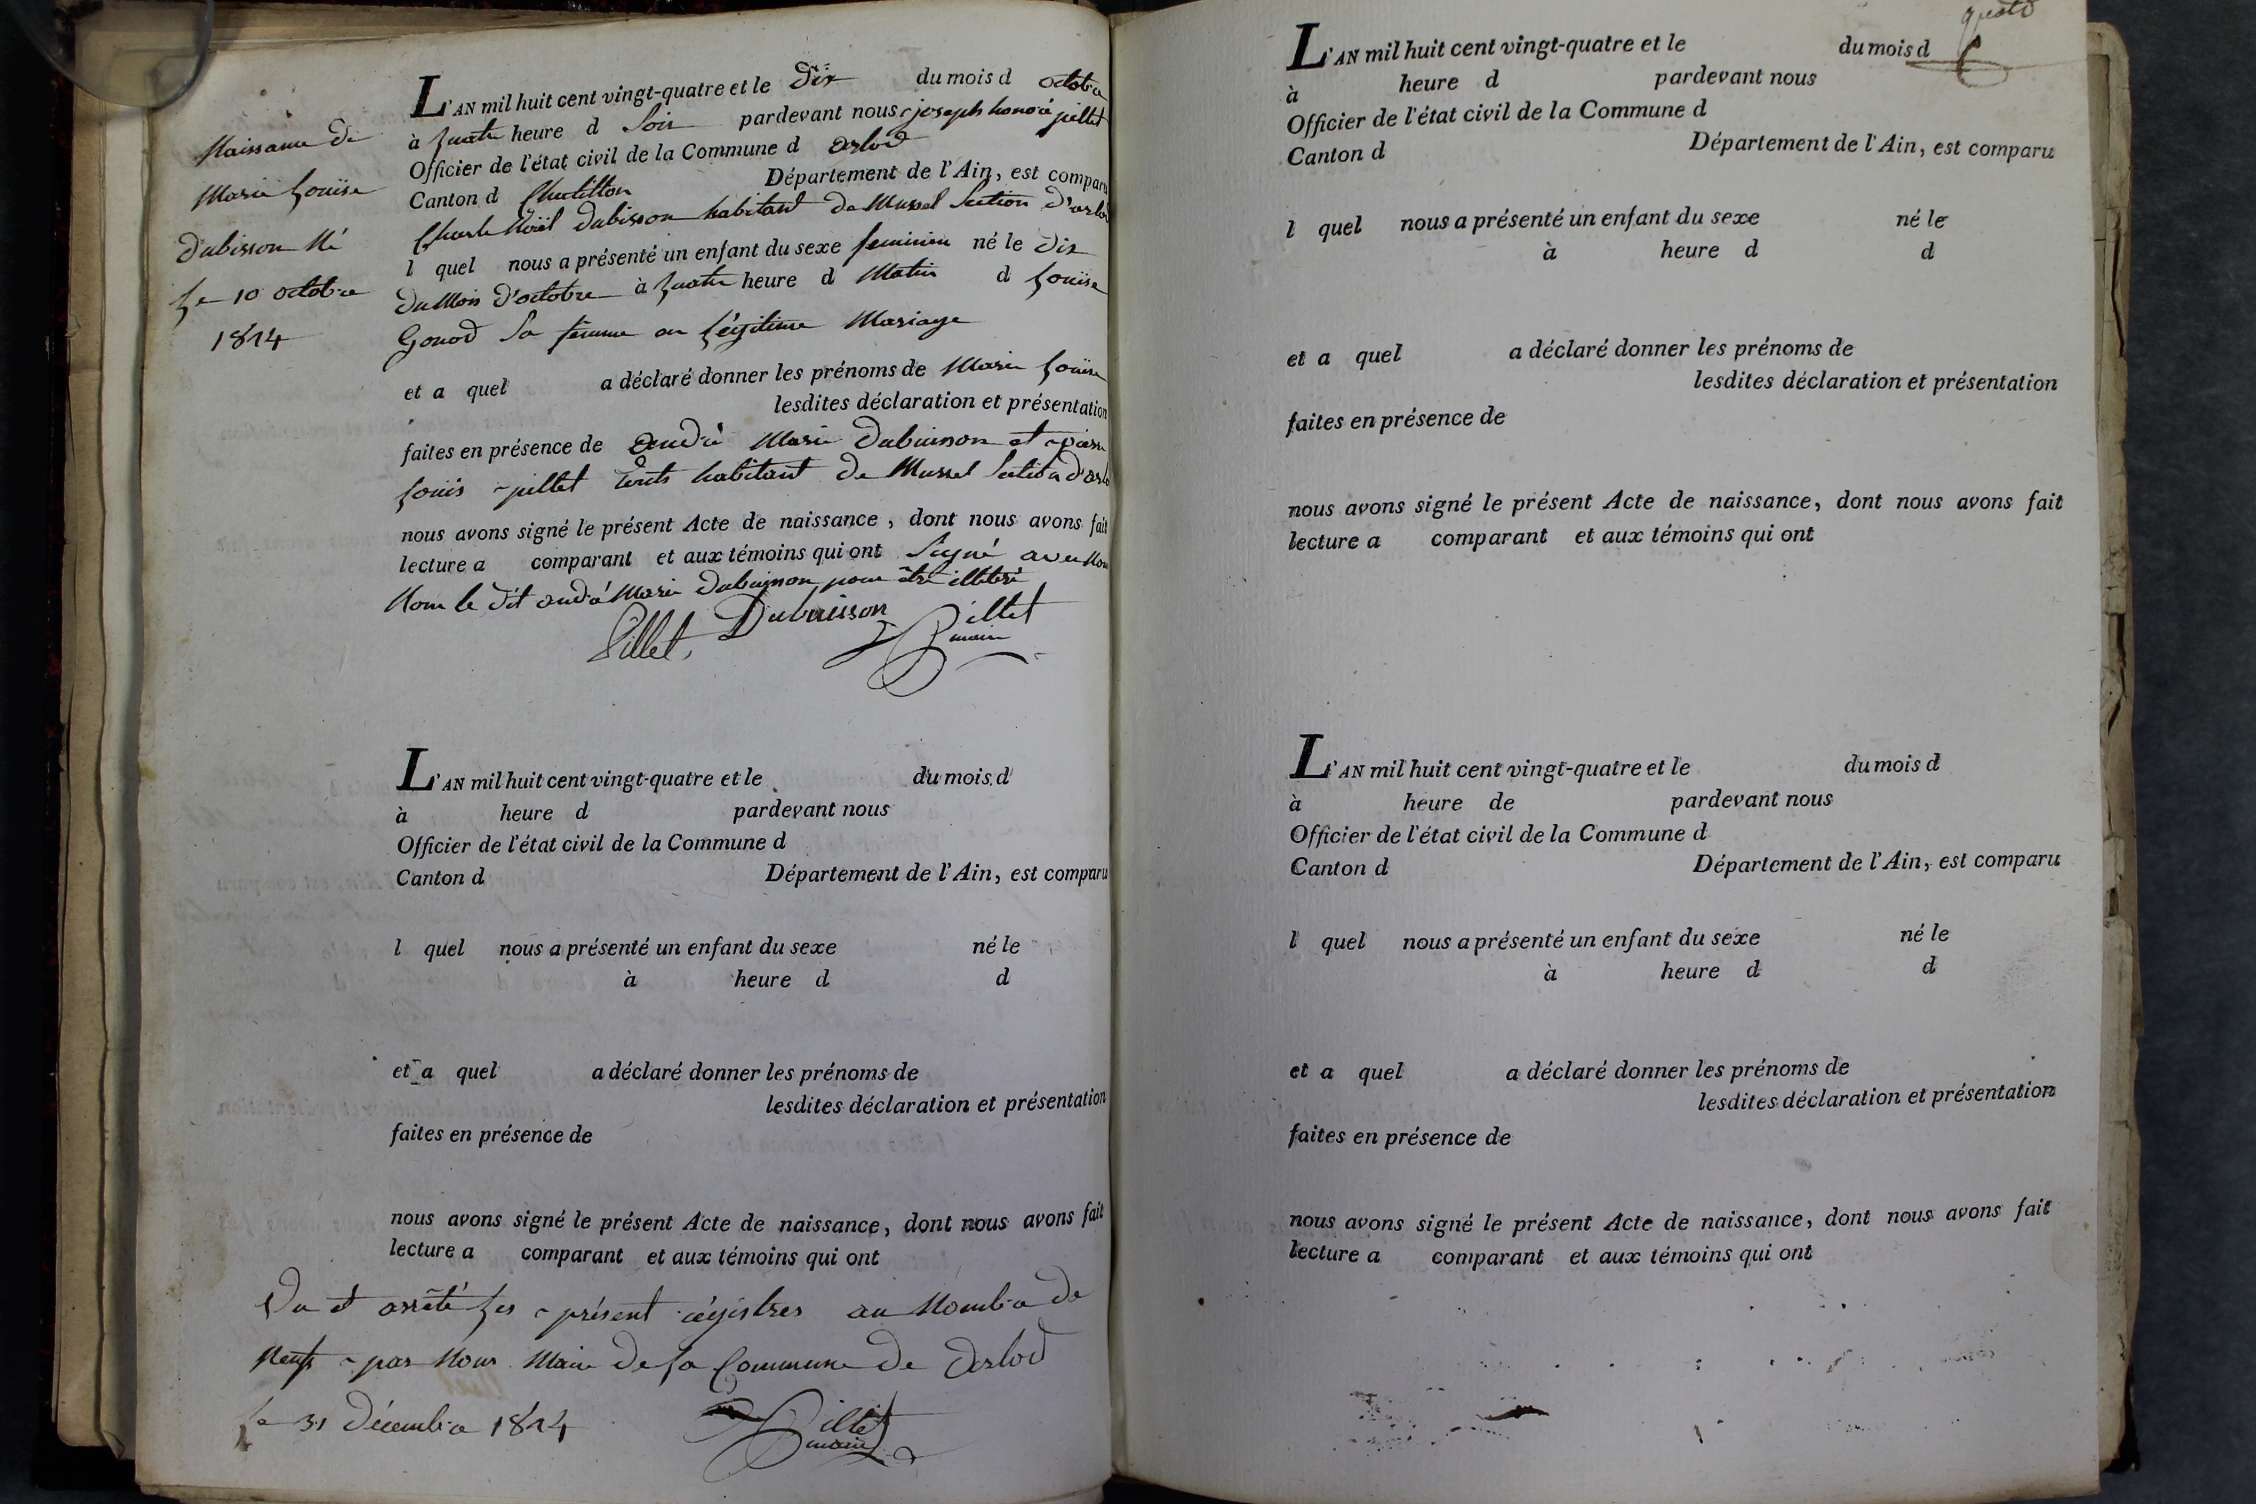 Naissance de
Marie Louise
Dubisson Né
Le 10 octobre
1824
L'AN mil huit cent vingt-quatre et le Dix du mois d octobre
à quatre heure d Soir pardevant nous joseph honoré pillet
Officier de l'état civil de la Commune d arlod
Canton d Chatillon Département de l'Ain, est comparu
Charle Noël Dubisson habitant de Mussel Section d'arlod
l quel nous a présenté un enfant du sexe feminin né le dix
du Mois d'octobre à quatre heure d Matin d Louise
Gonod Sa femme en Légitime Mariage
et a quel a déclaré donner les prénoms de Marie Louise
lesdites déclaration et présentation
faites en présence de André Marie Dubuisson et pierre
Louis pillet touts habitant de Mussel Section d'arlod
nous avons signé le présent Acte de naissance, dont nous avons fait
lecture a comparant et aux témoins qui ont Signé avec Nous
Nom le dit andré Marie Dubuisson pour être illitéré
Pillet Dubuisson Pillet
maire
L'AN mil huit cent vingt-quatre et le du mois d
à heure d pardevant nous
Officier de l'état civil de la Commune d
Canton d Département de l'Ain, est comparu
l quel nous a présenté un enfant du sexe né le
à heure d d
et a quel a déclaré donner les prénoms de
lesdites déclaration et présentation
faites en présence de
nous avons signé le présent Acte de naissance, dont nous avons fait
lecture a comparant et aux témoins qui ont
Vu et arrêté Les présent régistres au Nombre de
Neuf par Nous Maire de La Commune de Arlod
Le 31 Décembre 1824
Pillet
maire
L'AN mil huit cent vingt-quatre et le du mois d
à heure d pardevant nous
Officier de l'état civil de la Commune d
Canton d Département de l'Ain, est comparu
l quel nous a présenté un enfant du sexe né le
à heure d d
et a quel a déclaré donner les prénoms de
lesdites déclaration et présentation
faites en présence de
nous avons signé le présent Acte de naissance, dont nous avons fait
lecture a comparant et aux témoins qui ont
L'AN mil huit cent vingt-quatre et le du mois d
à heure de pardevant nous
Officier de l'état civil de la Commune d
Canton d Département de l'Ain, est comparu
l quel nous a présenté un enfant du sexe né le
à heure d d
et a quel a déclaré donner les prénoms de
lesdites déclaration et présentation
faites en présence de
nous avons signé le présent Acte de naissance, dont nous avons fait
lecture a comparant et aux témoins qui ont